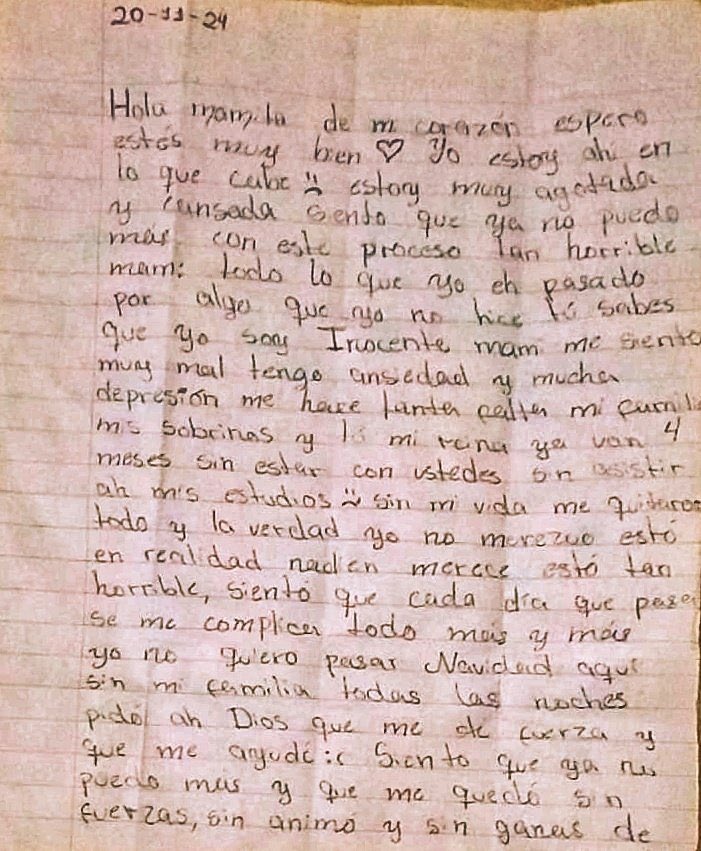 20-11-24
Hola mamita de mi corazón espero
estés muy bien ♡ Yo estoy ahi en
lo que cabe :( estoy muy agotada
y cansada siento que ya no puedo
más con este proceso tan horrible
mami todo lo que yo eh pasado
por algo que yo no hice tú sabes
que yo soy Inocente mami me siento
muy mal tengo ansedad y mucha
depresión me hace tanta falta mi familia
mis sobrinas y tú mi reina ya van 4
meses sin estar con ustedes sin asistir
ah mis estudios :( sin mi vida me quitaron
todo y la verdad yo no merezco estó
en realidad nadien merece estó tan
horrible, siento que cada día que pasa
se me complica todo más y más
yo no quiero pasar Navidad aquí
sin mi familia todas las noches
pidó ah Dios que me de fuerza y
que me ayudé :c Siento que ya no
puedo mas y que me quedó sin
fuerzas, sin animó y sin ganas de